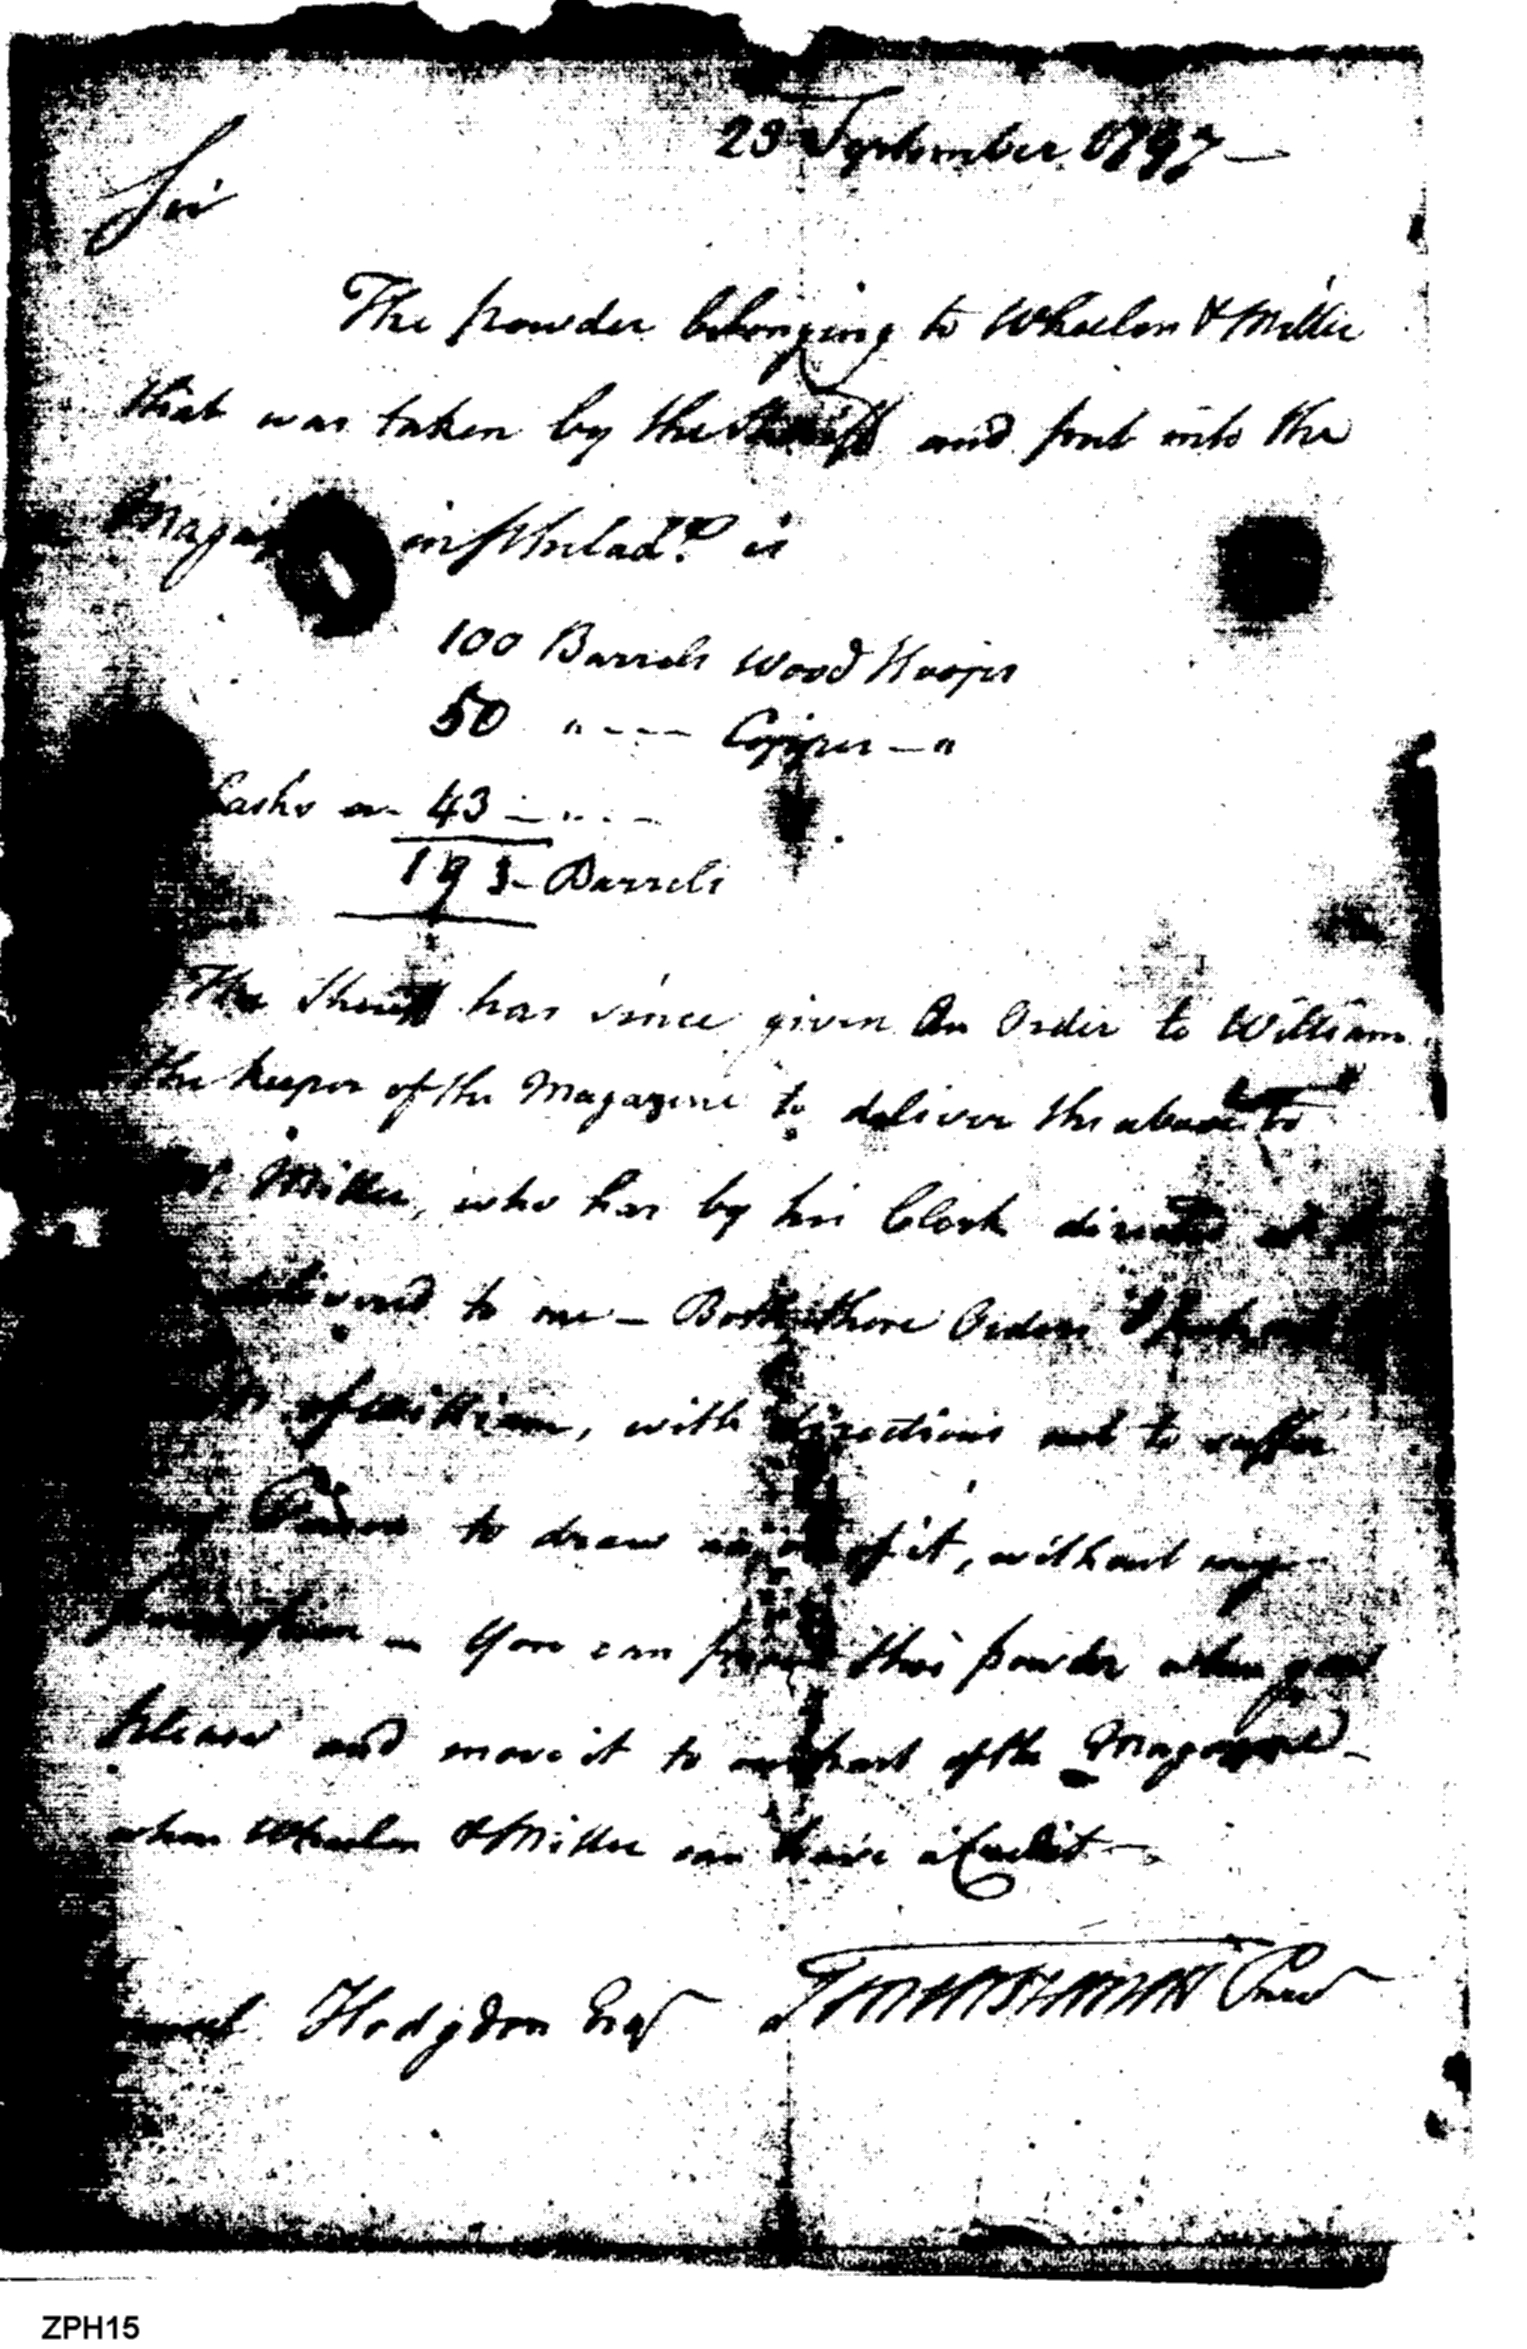 23 September 1797 —
Sir
The powder belonging to Whaelen & Miller
that was taken by the Sheriff and put into the
in Philad.ª is
100 Barrels Wood Hoops
50 " - - - Copper — "
Casks or 43 — " - -
193 - Barrels
The Sheriff has since given An Order to William
the keeper of the Magazine to deliver the above to
Miller, who has by his Clerk directed
to me — Both these Orders I
of William, with directions not to suffer
Person to draw of it, without my
permission — You can this powder when you
please and move it to part of the Magazine —
when Whaelen & Miller can have a Credit —
Hodgdon Esqr
ZPH15